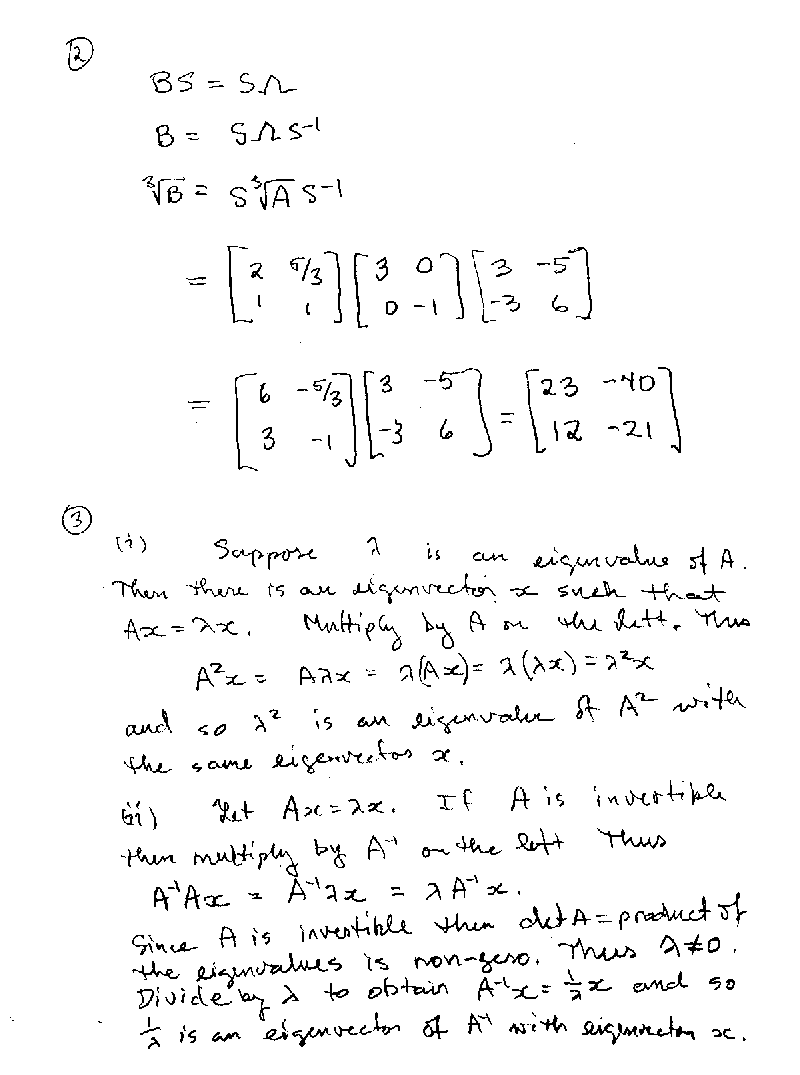 ②
BS = SΛ
B = SΛS⁻¹
∛B = S∛Λ S⁻¹
= [2 5/3; 1 1] [3 0; 0 -1] [3 -5; -3 6]
= [6 -5/3; 3 -1] [3 -5; -3 6] = [23 -40; 12 -21]
③
(i) Suppose λ is an eigenvalue of A.
Then there is an eigenvector x such that
Ax = λx. Multiply by A on the left. Thus
A²x = Aλx = λ(Ax) = λ(λx) = λ²x
and so λ² is an eigenvalue of A² with
the same eigenvector x.
ii) Let Ax = λx. If A is invertible
then multiply by A⁻¹ on the left Thus
A⁻¹Ax = A⁻¹λx = λA⁻¹x.
Since A is invertible then det A = product of
the eigenvalues is non-zero. Thus λ≠0.
Divide by λ to obtain A⁻¹x = 1/λ x and so
1/λ is an eigenvector of A⁻¹ with eigenvector x.